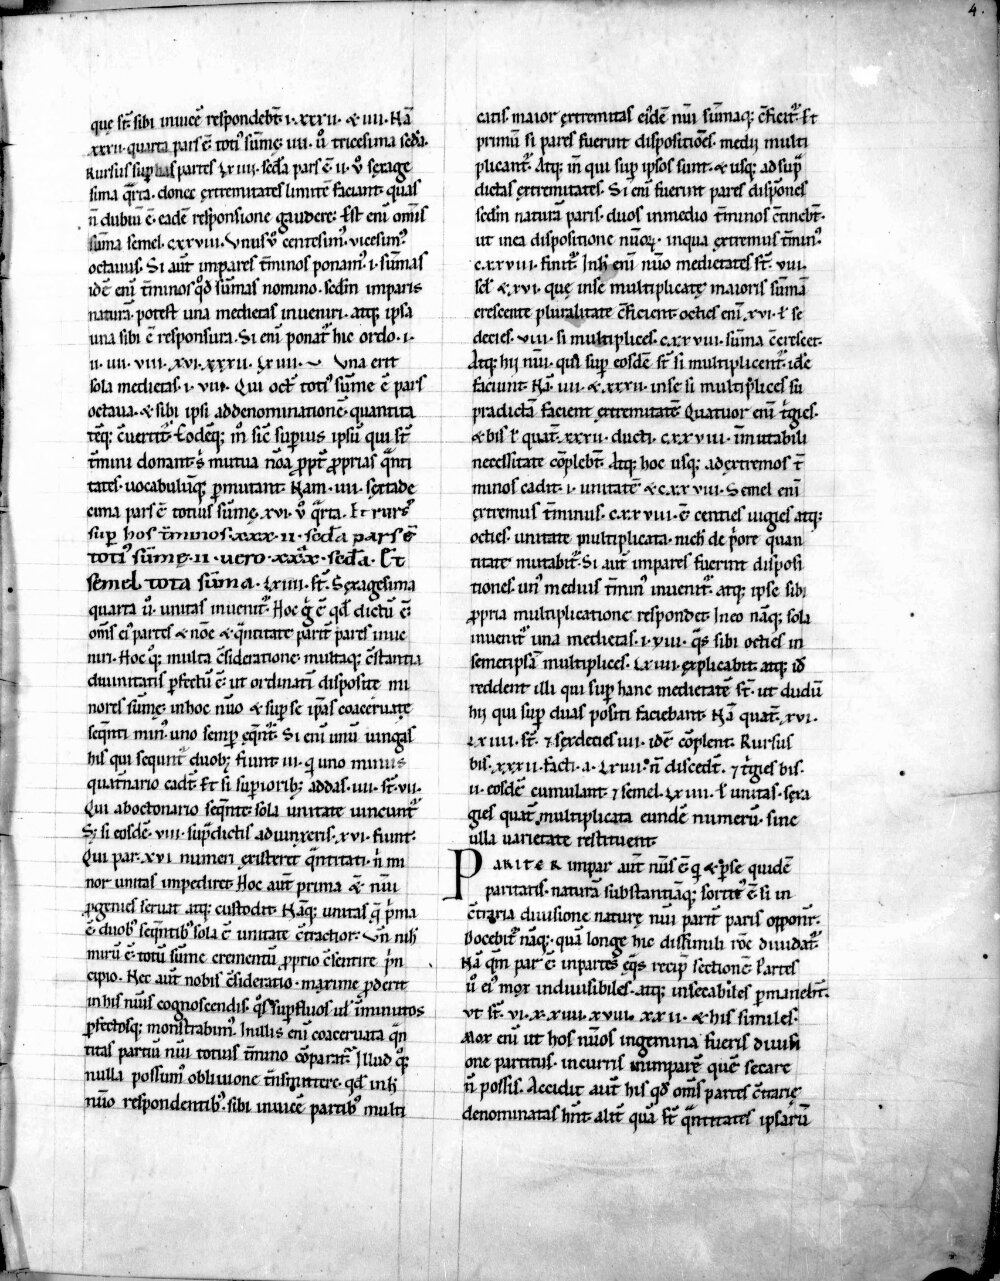 4.
quę st̄ sibi inuicē respondebt̄ .i. xxxii. & iiii. Nā
xxxii. quarta pars ē toti' sūmę. iiii. ů tricesima sc̄da.
Rursus sup̄ has partes Lxiiii. sc̄da pars ē. ii. ů sexage
sima q̄rta. donec extremitates limitē faciant. quas
n̄ dubiū ē. eadē responsione gaudere. Est enī om̄is
sūma semel. cxxviii. Vnus ů centesim'. vicesim'.
octauus. Si aut̄ impares t̄minos ponam'. i. sūmas
idē enī t̄minos qd̄ sūmas nomino. sedm̄ imparis
naturā. potest una medietas inueniri. atq; ipsa
una sibi ē responsura. Si enī ponat' hic ordo. i.
ii. iiii. viii. xvi. xxxii. lxiiii. Vna erit
sola medietas. i. viii. Qui oct' toti' sūme ē pars
octaua. & sibi ipsi addenominationē quantita
tēq; c̄uertit'. Eodēq; m̊ sic̄ superius ipsū qui st̄
t̄mini donant s' mutua nōa ꝓpt̄ ꝓprias q̄nti
tates. uocabulūq; ꝑmutant. Nam. iiii. sextade
cima pars ē totius sūmę. xvi. ů q̄rta. Et rurs'
sup̄ hos t̄minos. xxx. ii. sc̄da pars ē
toti' sūmę. ii. uero. xxx. sc̄da. Et
semel tota sūma. Lxiiii. st̄. Sexagesima
quarta ů. unitas inuenit'. Hoc g̊ ē qd̄ dictū ē.
om̄s ei' partes & nōe & q̄ntitate parit̄ pares inue
niri. Hoc q'; multa c̄sideratione. multaq; c̄stantia
diuinitatis ꝑfectū ē. ut ordinatī disposite mi
nores sūmę. in hoc nūo & sup̄ se ip̄as coaceruatę
seq̄nti min' uno semp̄ eq̄nt'. Si enī unū iungas
his qui sequunt' duob;. fiunt iii. qi uno minus
quat̄nario cadt̄. Et si superiorib; addas. iiii. st̄. vii.
Qui aboctonario seq̄nte sola unitate uincunt'
S; si eosdē. viii. sup̄dictis adiunxeris. xvi. fiunt.
Qui par. xvi numeri existeret q̄ntitati. ni mi
nor unitas impediret. Hoc aut̄ prima & nūi
ꝓgenies seruat atq; custodit. Nāq; unitas q̄ p̄ma
ē. duob' seq̄ntib' sola ē unitate c̄tractior. Vn̄ nih̄
mirū ē. totū sūme crementū ꝓprio c̄sentire p̄n
cipio. Nec aut̄ nobis c̄sideratio. maxime ꝓderit
in his nūis cognoscendis. q̊s sup̄fluos uł īminutos
ꝑfectosq; monstrabim'. In illis enī coaceruata q̄n
titas partiū nūi totius t̄mino cōparat'. Illud q';
nulla possum' obliuione t̄nsmittere. qd̄ inh̄
nūo respondentib' sibi inuicē partib' multi
catis. maior extremitas ei'dē nūi sūmaq; c̄ficit'. Et
primū si pares fuerint dispositiones. medij multi
plicant'. Atq; in̄ qui sup̄ ipsos sunt. & usq; ad sup̄
dictas extremitates. Si enī fuerint pares disp̄ones
sedm̄ naturā paris. duos inmedio t̄minos c̄tinebt̄.
ut inea dispositione nūoꝝ. inqua extremus t̄min'
c.xxviii. finit'. Inh̄ enī nūo medietates st̄. viii.
scl' & xvi. quę inse multiplicatę maioris sūmā
crescente pluralitate c̄ficient. octies enī. xvi. ł se
decies. viii. si multiplices. c.xxviii. sūma c̄crescet.
Atq; hij nūi. qui sup̄ eosdē st̄ si multiplicent'. idē
faciunt. Nā. iiii. & xxxii. inse si multip̄lices su
pradictā facient extremitatē. Quatuor enī t'gies.
& bis ł quat̄. xxxii. ducti. c.xxviii. īmutabili
necessitate cōplebt̄. Atq; hoc usq; adextremos t̄
minos cadit. i. unitatē & c.xxviii. Semel enī
extremus t̄minus. c.xxviii. ē centies uigies atq;
octies. unitate multiplicata. nich̄ de p̄ore quan
titate mutabit'. Si aut̄ impares fuerint disposi
tiones. un' medius t̄min' inuenit'. atq; ipse sibi
ꝓpria multiplicatione respondet. In eo nāq; sola
inuenit' una medietas. i. viii. q̊s sibi octies in
semetipsā multiplices. Lxiiii. explicabit. atq; id̄
reddent illi qui sup̄ hanc medietatē st̄. ut dudū
hij qui sup̄ duas positi faciebant. Nā quat̄. xvi.
Lxiiii. st̄. ⁊ sexdecies iiii. idē cōplent. Rursus
bis. xxxii. facti. a. Lxiiii. n̄ discedt̄. ⁊ t'gies bis.
ii. eosdē cumulant ⁊ semel. Lxiiii. ł unitas. sexa
gies quat̄ multiplicata eundē numerū. sine
ulla uarietate restituent.
PARITER impar aut̄ nūs ē q̊ & p̄se quidē
paritatis. naturā substantiāq; sortit' ē. si in
c̄traria diuisione naturę nūi parit̄ paris opponit'.
Docebit' nāq;. quā longe hic dissimili rōe diuidat'.
Nā qm̄ par ē. inpartes ęq̄s recip̄ sectionē. Partes
ů ei' mox indiuisibiles. atq; insecabiles ꝑmanebt̄.
vt st̄. vi. x. xiiii. xviii. xxii. & his similes.
Mox enī ut hos nūos ingemina fueris diuisi
one partitus. incurris inimparē quē secare
n̄ possis. Accidit aut̄ his qd̄ om̄s partes c̄trarię
denominatas hn̄t. alit̄ quā st̄ q̄ntitates ipsarū